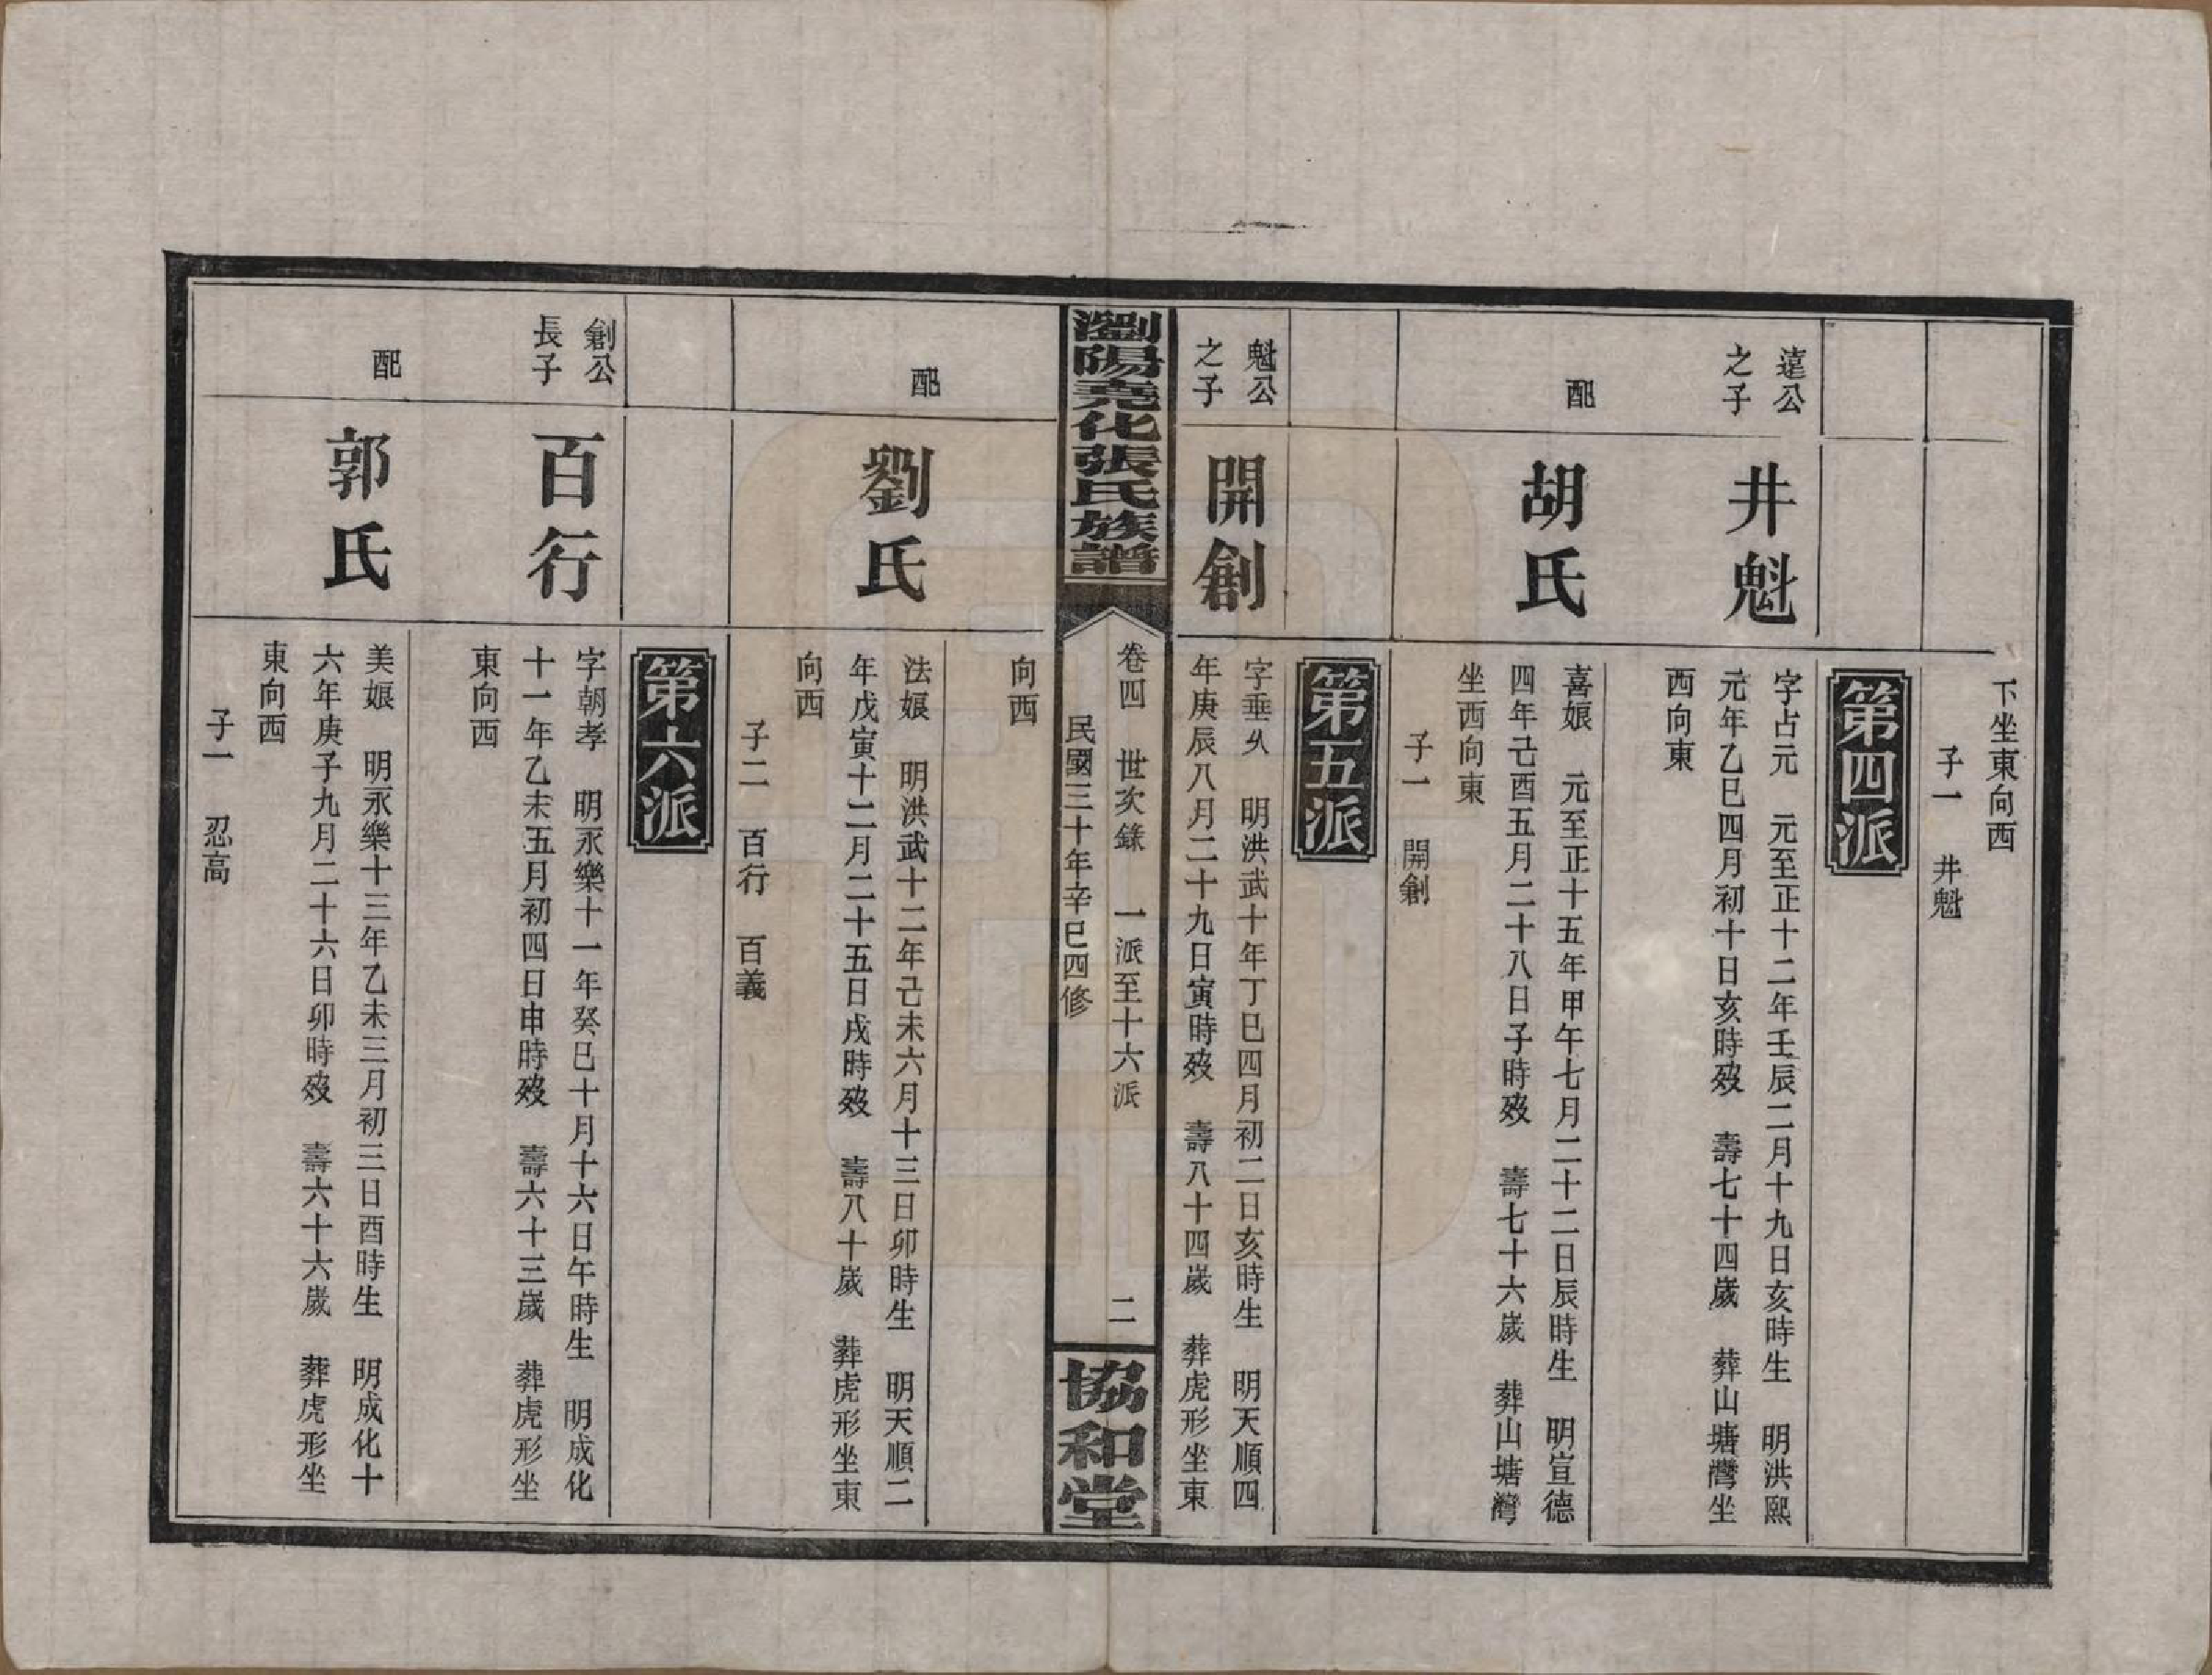 下坐東向西
子一　井魁
第四派
遠公
之子
井魁
字占元　元至正十二年壬辰二月十九日亥時生　明洪熙
元年乙巳四月初十日亥時歿　壽七十四歲　葬山塘灣坐
西向東
配
胡氏
喜娘　元至正十五年甲午七月二十二日辰時生　明宣德
四年己酉五月二十八日子時歿　壽七十六歲　葬山塘灣
坐西向東
子一　開創
第五派
魁公
之子
開創
字垂久　明洪武十年丁巳四月初二日亥時生　明天順四
年庚辰八月二十九日寅時歿　壽八十四歲　葬虎形坐東
瀏陽堯化張氏族譜
卷四　世次錄　一派至十六派　二
民國三十年辛巳四修
協和堂
向西
配
劉氏
法娘　明洪武十二年己未六月十三日卯時生　明天順二
年戊寅十二月二十五日戌時歿　壽八十歲　葬虎形坐東
向西
子二　百行　百義
第六派
創公
長子
百行
字朝孝　明永樂十一年癸巳十月十六日午時生　明成化
十一年乙未五月初四日申時歿　壽六十三歲　葬虎形坐
東向西
配
郭氏
美娘　明永樂十三年乙未三月初三日酉時生　明成化十
六年庚子九月二十六日卯時歿　壽六十六歲　葬虎形坐
東向西
子一　忍高